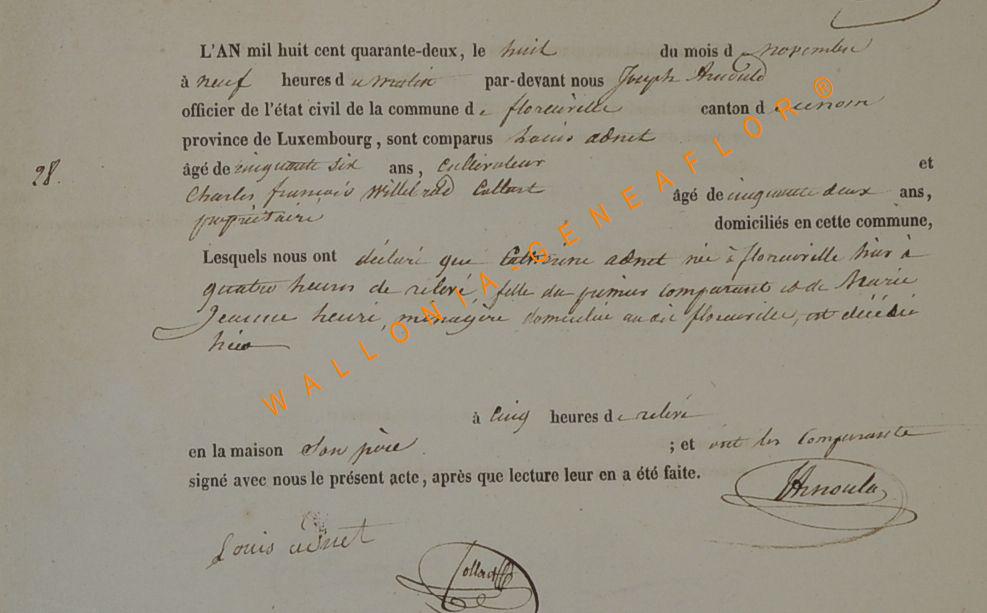 L'AN mil huit cent quarante-deux, le huit du mois d novembre
à neuf heures d u matin par-devant nous Joseph Arnould
officier de l'état civil de la commune d e florenville canton d e mem nom
province de Luxembourg, sont comparus Louis adnet
28. âgé de cinquante six ans, Cultivateur et
Charles françois Willibrod Collart âgé de cinquante deux ans,
propriétaire domiciliés en cette commune,
Lesquels nous ont déclaré que Catherine adnet née à florenville hier à
quatre heures de relevé fille du premier comparant et de Marie
Jeanne henri, ménagère domiciliée au dit florenville, est décédée
hier
à Cinq heures d e relevé
en la maison son père ; et ont les Comparants
signé avec nous le présent acte, après que lecture leur en a été faite.
JArnould
Louis adnet
Collart
WALLONIA-GENEAFLOR®